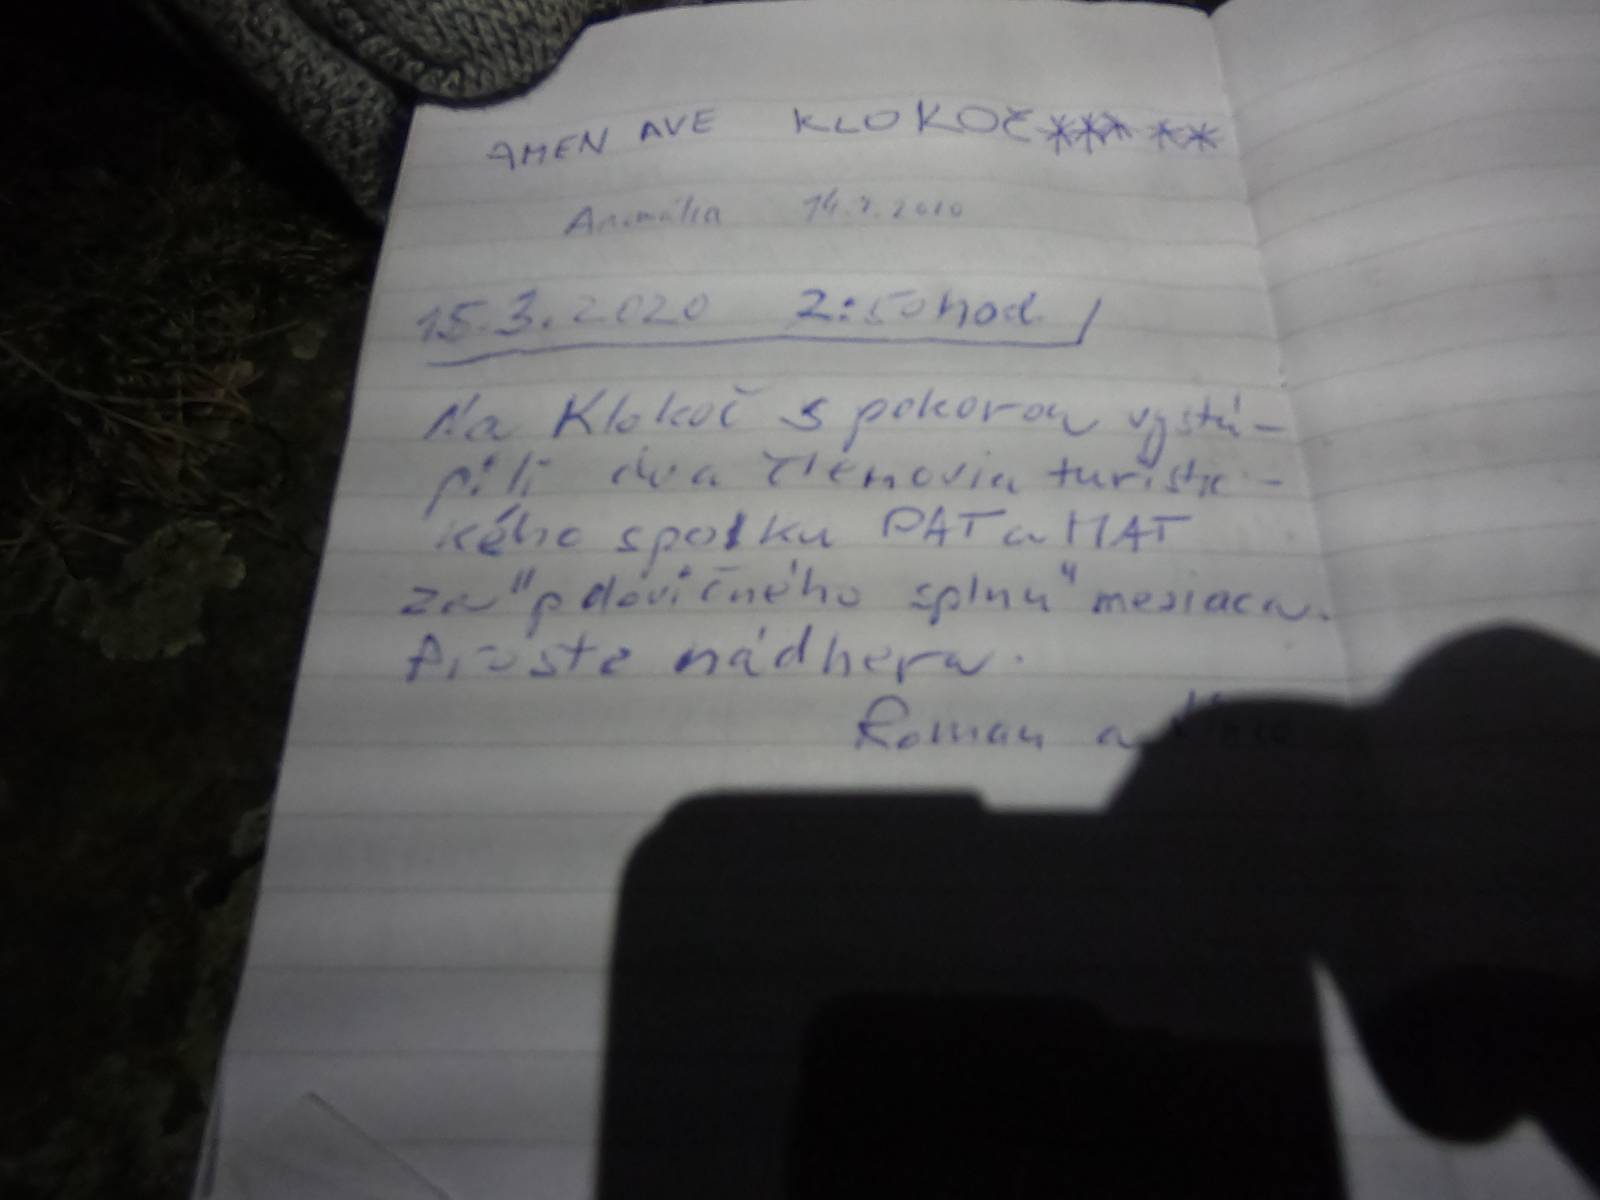 AMEN AVE KLOKOČ*****
15.3.2020 2:50 hod.
Na Klokoč s pokorou vystú-
pili dva členovia turistic-
kého spolku PAT a MAT
za "polovičného splnu" mesiaca.
Proste nádhera.
Roman a